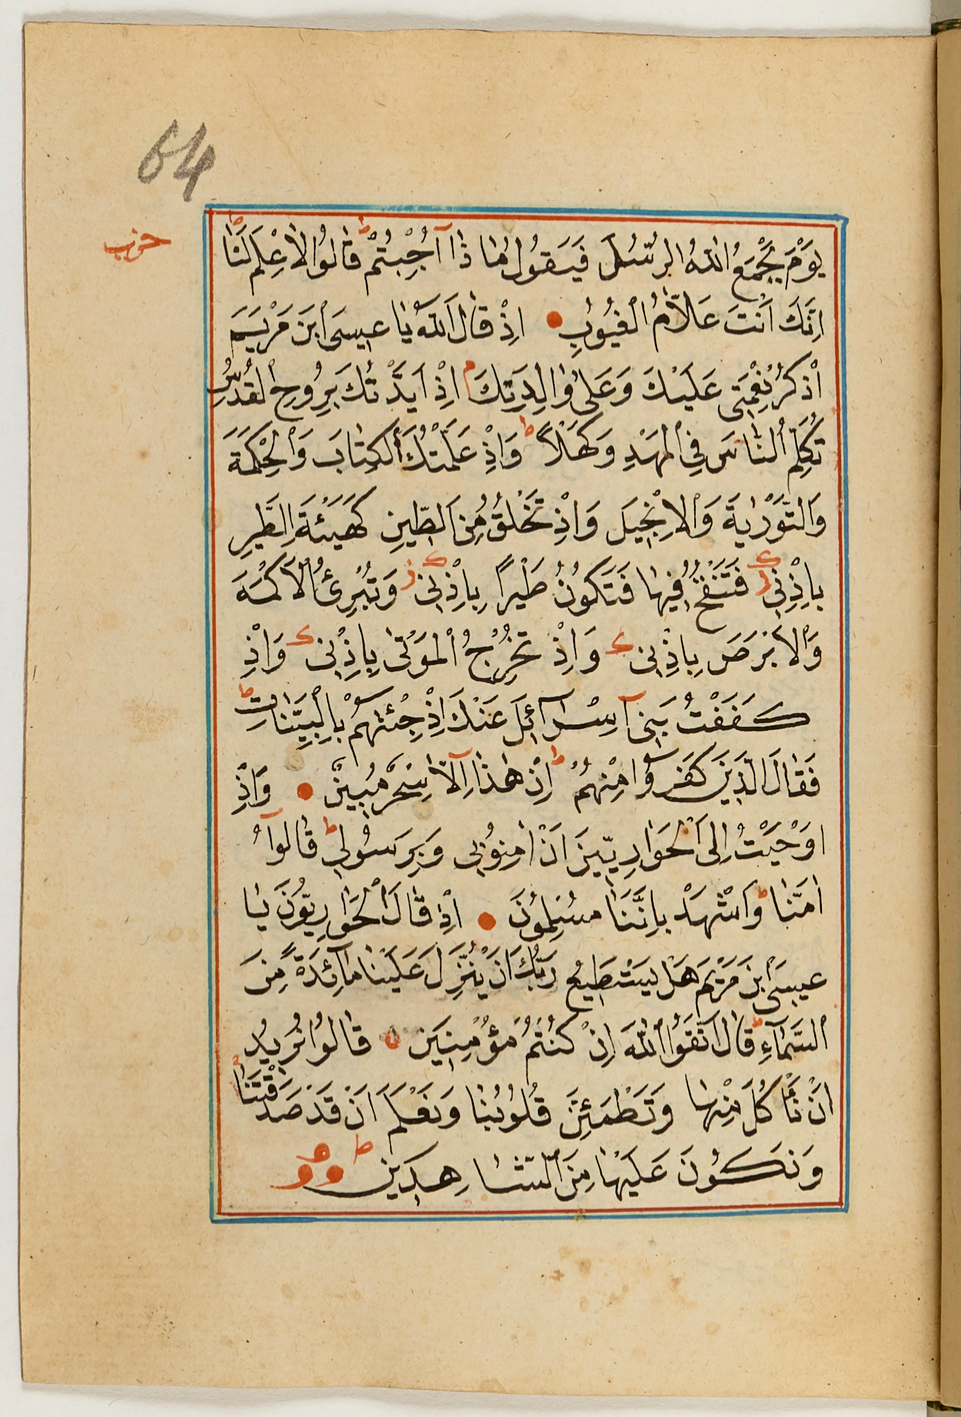 64
حزب
يَوْمَ يَجْمَعُ اللّٰهُ الرُّسُلَ فَيَقُولُ مَاذَٓا اُجِبْتُمْ قَالُوا لَا عِلْمَ لَنَا
اِنَّكَ اَنْتَ عَلَّامُ الْغُيُوبِ اِذْ قَالَ اللّٰهُ يَا عِيسَى ابْنَ مَرْيَمَ
اذْكُرْ نِعْمَتِى عَلَيْكَ وَعَلٰى وَالِدَتِكَ اِذْ اَيَّدْتُكَ بِرُوحِ الْقُدُسِ
تُكَلِّمُ النَّاسَ فِى الْمَهْدِ وَكَهْلًا وَاِذْ عَلَّمْتُكَ الْكِتَابَ وَالْحِكْمَةَ
وَالتَّوْرٰيةَ وَالْاِنْجِيلَ وَاِذْ تَخْلُقُ مِنَ الطِّينِ كَهَيْئَةِ الطَّيْرِ
بِاِذْنِى فَتَنْفُخُ فِيهَا فَتَكُونُ طَيْرًا بِاِذْنِى وَتُبْرِئُ الْاَكْمَهَ
وَالْاَبْرَصَ بِاِذْنِى وَاِذْ تُخْرِجُ الْمَوْتٰى بِاِذْنِى وَاِذْ
كَفَفْتُ بَنِىٓ اِسْرَٓائِلَ عَنْكَ اِذْ جِئْتَهُمْ بِالْبَيِّنَاتِ
فَقَالَ الَّذِينَ كَفَرُوا مِنْهُمْ اِنْ هٰذَٓا اِلَّا سِحْرٌ مُبِينٌ وَاِذْ
اَوْحَيْتُ اِلَى الْحَوَارِيِّينَ اَنْ اٰمِنُوا بِى وَبِرَسُولِى قَالُوٓا
اٰمَنَّا وَاشْهَدْ بِاَنَّنَا مُسْلِمُونَ اِذْ قَالَ الْحَوَارِيُّونَ يَا
عِيسَى ابْنَ مَرْيَمَ هَلْ يَسْتَطِيعُ رَبُّكَ اَنْ يُنَزِّلَ عَلَيْنَا مَٓائِدَةً مِنَ
السَّمَٓاءِ قَالَ اتَّقُوا اللّٰهَ اِنْ كُنْتُمْ مُؤْمِنِينَ قَالُوا نُرِيدُ
اَنْ نَأْكُلَ مِنْهَا وَتَطْمَئِنَّ قُلُوبُنَا وَنَعْلَمَ اَنْ قَدْ صَدَقْتَنَا
وَنَكُونَ عَلَيْهَا مِنَ الشَّاهِدِينَ